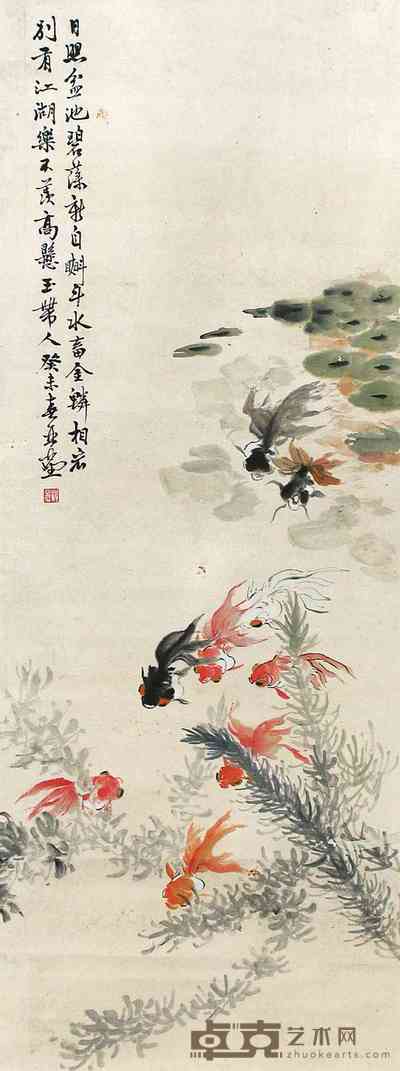 日照盆池碧藻新自斟斗水畜金鱗相忘
別有江湖樂不羨高懸玉帶人癸未春亞塵
卓克艺术网
zhuokearts.com